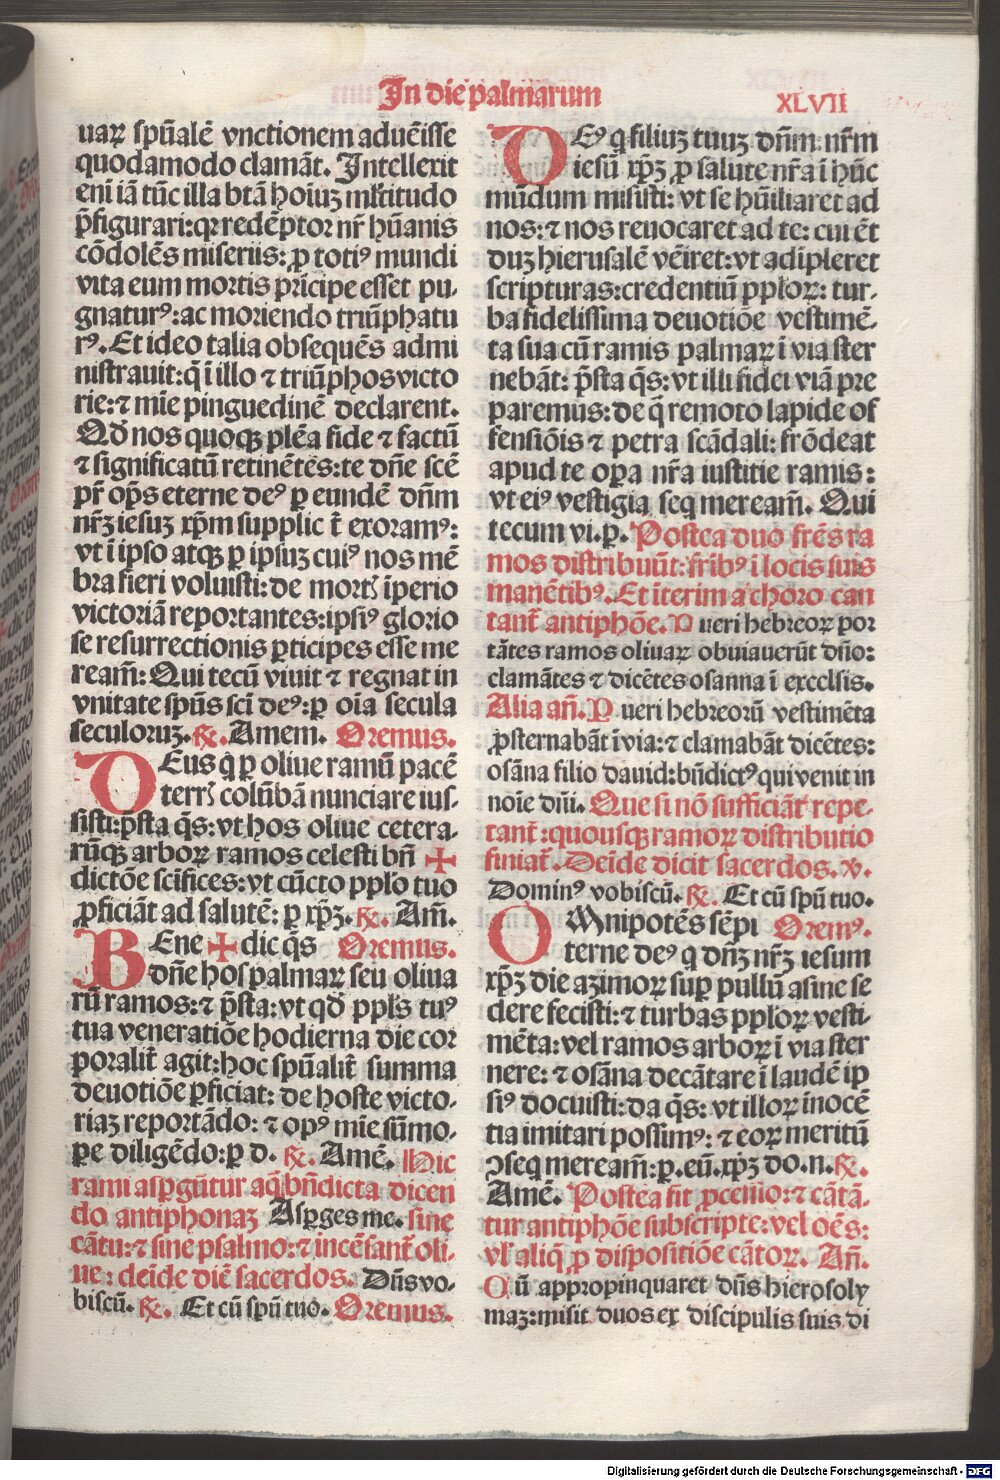 In die palmarum
XLVII
uaꝝ sp̄ualē vnctionem aduēisse
quodamodo clamāt. Intellexit
eni iā tūc illa btā hoīuꝫ mltitudo
p̄figurari: qꝛ redēptor nr̄ hūanis
cōdolēs miseriis: ꝓ totiꝰ mundi
vita eum mortis prīcipe esset pu-
gnaturꝰ: ac moriendo triūphatu
rꝰ. Et ideo talia obsequēs admi
nistrauit: q̄ ī illo ⁊ triūphos victo
rie: ⁊ mīe pinguedinē declarent.
Qd̄ nos quoqꝫ plēa fide ⁊ factū
⁊ significatū retinētes: te dn̄e scē
pr̄ op̄s eterne deꝰ ꝑ eundē dn̄m
nr̄ꝫ iesuꝫ xp̄m supplic t̄ exoramꝰ:
vt ī ipso atqꝫ ꝑ ipsuꝫ cuiꝰ nos mē
bra fieri voluisti: de mortꝭ īperio
victoriā reportantes: ipsiꝰ glorio
se resurrectionis ꝑticipes esse me
ream̄: Qui tecū viuit ⁊ regnat in
vnitate sp̄us sc̄i deꝰ: ꝑ oīa secula
seculoruꝫ. ℟. Amem. Oremus.
DEus q̄ ꝑ oliue ramū pacē
terrꝭ colūbā nunciare ius-
sisti: p̄sta q̄s: vt hos oliue cetera-
rūqꝫ arboꝝ ramos celesti bn̄ ✠
dictōe scīfices: vt cūcto pplo tuo
ꝓficiāt ad salutē: ꝑ xp̄ꝫ. ℟. Am̄.
BEne ✠ dic q̄s Oremus.
dn̄e hos palmaꝝ seu oliua
rū ramos: ⁊ p̄sta: vt qd̄ ppl̄s tuꝰ
tua veneratiōe hodierna die cor
poralit̄ agit: hoc sp̄ualit̄ summa
deuotiōe ꝑficiat: de hoste victo-
riaꝫ reportādo: ⁊ opꝰ mīe sūmo-
pe diligēdo: ꝑ d. ℟. Amē. Hic
rami aspgūtur aq̄ bn̄dicta dicen
do antiphonaꝫ Asꝑges me. sine
cātu: ⁊ sine psalmo: ⁊ incēsant̄ oli-
ue: deīde diē sacerdos. Dn̄s vo-
biscū. ℟. Et cū spū tuo. Oremus.
DEꝰ q̄ filiuꝫ tuuꝫ dn̄m nr̄m
iesū xp̄ꝫ ꝓ salute nr̄a ī hūc
mūdum misisti: vt se hūiliaret ad
nos: ⁊ nos reuocaret ad te: cui ēt
duꝫ hierusalē vēiret: vt adīpleret
scripturas: credentiū pploꝝ: tur-
ba fidelissima deuotiōe vestimē-
ta sua cū ramis palmaꝝ ī via ster
nebāt: p̄sta q̄s: vt illi fidei viā pre
paremus: de q̄ remoto lapide of
fensiōis ⁊ petra scādali: frōdeat
apud te oꝑa nr̄a iustitie ramis:
vt eiꝰ vestigia seq meream̄. Qui
tecum vi. ꝑ. Postea duo frēs ra
mos distribuūt: fr̄ibꝰ ī locis suis
manētibꝰ. Et īterim a choro can
tant̄ antiphōe. Pueri hebreoꝝ por
tātes ramos oliuaꝝ obuiauerūt dn̄o:
clamātes ⁊ dicētes osanna ī excelsis.
Alia an̄. Pueri hebreorū vestimēta
ꝓsternabāt ī via: ⁊ clamabāt dicētes:
osāna filio dauid: bn̄dictꝰ qui venit in
noīe dn̄i. Que si nō sufficiāt repe-
tant̄: quousqꝫ ramoꝝ distributio
finiat̄. Deīde dicit sacerdos. ℣.
Dominꝰ vobiscū. ℟. Et cū spū tuo.
OMnipotēs sēpi Oremꝰ.
terne deꝰ q dn̄ꝫ nr̄ꝫ iesum
xp̄ꝫ die aꝫimoꝝ suꝑ pullū asine se
dere fecisti: ⁊ turbas pploꝝ vesti-
mēta: vel ramos arboꝝ ī via ster
nere: ⁊ osāna decātare ī laudē ip
siꝰ docuisti: da q̄s: vt illoꝝ īnocē
tia imitari possimꝰ: ⁊ eoꝝ meritū
ꝯseq meream̄: ꝑ. eū. xp̄ꝫ do. n. ℟.
Amē. Postea fit ꝓcessio: ⁊ cātā-
tur antiphōe subscripte: vel oēs:
vl̄ aliq̄ ꝓ dispositiōe cātoꝝ. An̄.
Cū appropinquaret dn̄s hierosoly
maꝫ: misit duos ex discipulis suis di
Digitalisierung gefördert durch die Deutsche Forschungsgemeinschaft - DFG